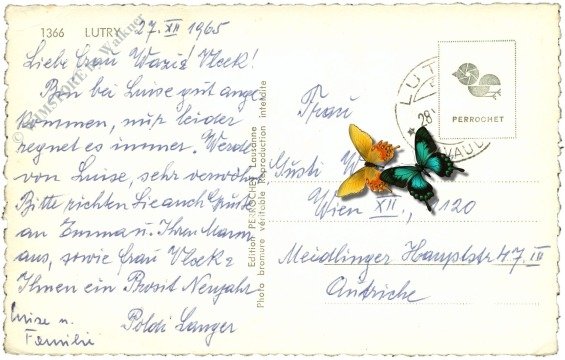 1366 LUTRY 27.XII 1965
Liebe Frau Wazis! Vlcek!
Bin bei Luise gut ange
kommen, nur leider
regnet es immer. Werde
von Luise, sehr verwöhnt
Bitte richten Sie auch Grüße
an Emma u. Ihren Mann
aus, sowie Frau Vlcek
Ihnen ein Prosit Neujahr
Poldi Langer
Luise u.
Familie
Edition PERROCHET Lausanne
Photo bromure véritable Reproduction interdite
PERROCHET
LUT
28
VAUD
Frau
Gusti W
Wien XII., 120
Meidlinger Hauptstr 47 IV
Autriche